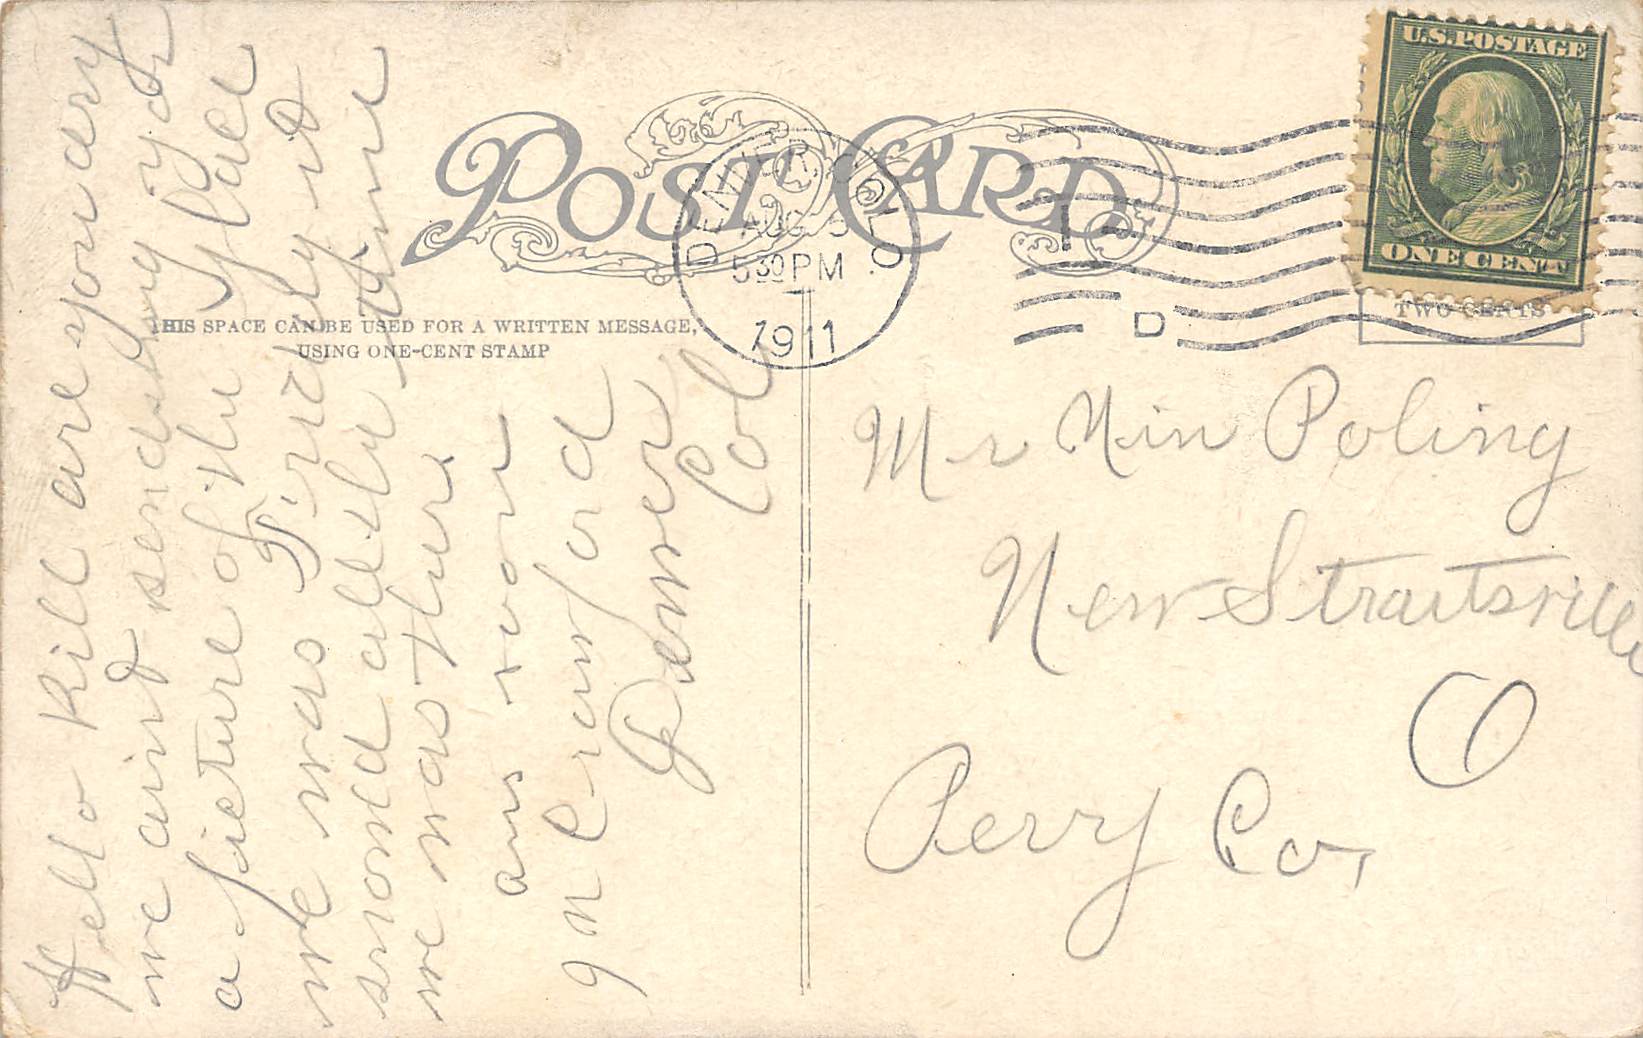 POST CARD
THIS SPACE CAN BE USED FOR A WRITTEN MESSAGE,
USING ONE-CENT STAMP
DENVER, COLO.
AUG 5
5 30 PM
1911
D
U.S. POSTAGE
ONE CENT
TWO CENTS
Hello Kill are you arry
we aint sending you
a picture of the place
we was Friday it
snowd all the time
we was there
ans soon
Crawford
Denver
Col
Mr Nin Poling
New Straitsville
O
Perry Co,